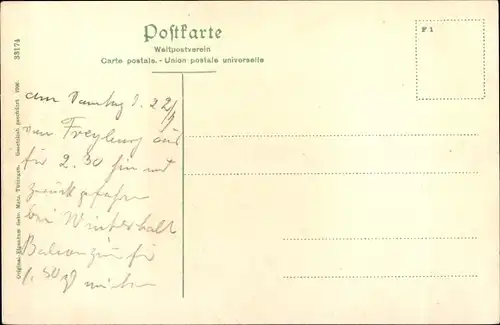 Postkarte
Weltpostverein
Carte postale. - Union postale universelle
F 1
33174
Original Eigentum Gebr. Metz, Tübingen. Gesetzlich geschützt 1906.
am 22/9
von Freyburg aus
für 2.30 hin und
zurück gefahren
bei Winterhalt
für
1.50